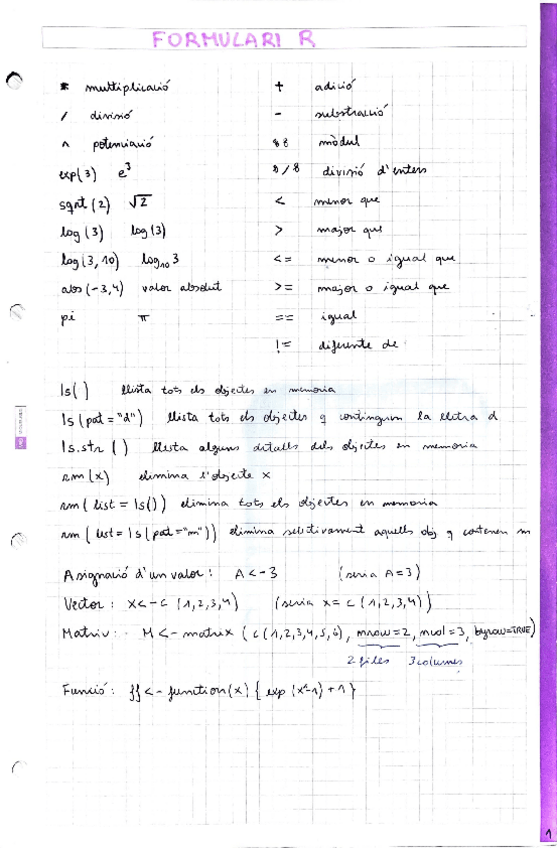 FORMULARI R
* multiplicació + adició
/ divisió - substracció
^ potenciació %% mòdul
exp(3) e³ %/% divisió d'enters
sqrt(2) √2 < menor que
log(3) log(3) > major que
log(3,10) log₁₀3 <= menor o igual que
abs(-3,4) valor absolut >= major o igual que
pi π == igual
!= diferente de
ls() llista tots els objectes en memoria
ls(pat="d") llista tots els objectes q continguin la lletra d
ls.str() llista alguns detalls dels objectes en memoria
rm(x) elimina l'objecte x
rm(list=ls()) elimina tots els objectes en memoria
rm(list=ls(pat="m")) elimina selectivament aquells obj q contenen m
Asignació d'un valor: A<-3 (seria A=3)
Vector: x<-c(1,2,3,4) (seria x=c(1,2,3,4))
Matriu: M<-matrix(c(1,2,3,4,5,6), nrow=2, ncol=3, byrow=TRUE)
2 files 3 columnes
Funció: ff<-function(x){exp(x²-1)+1}
1